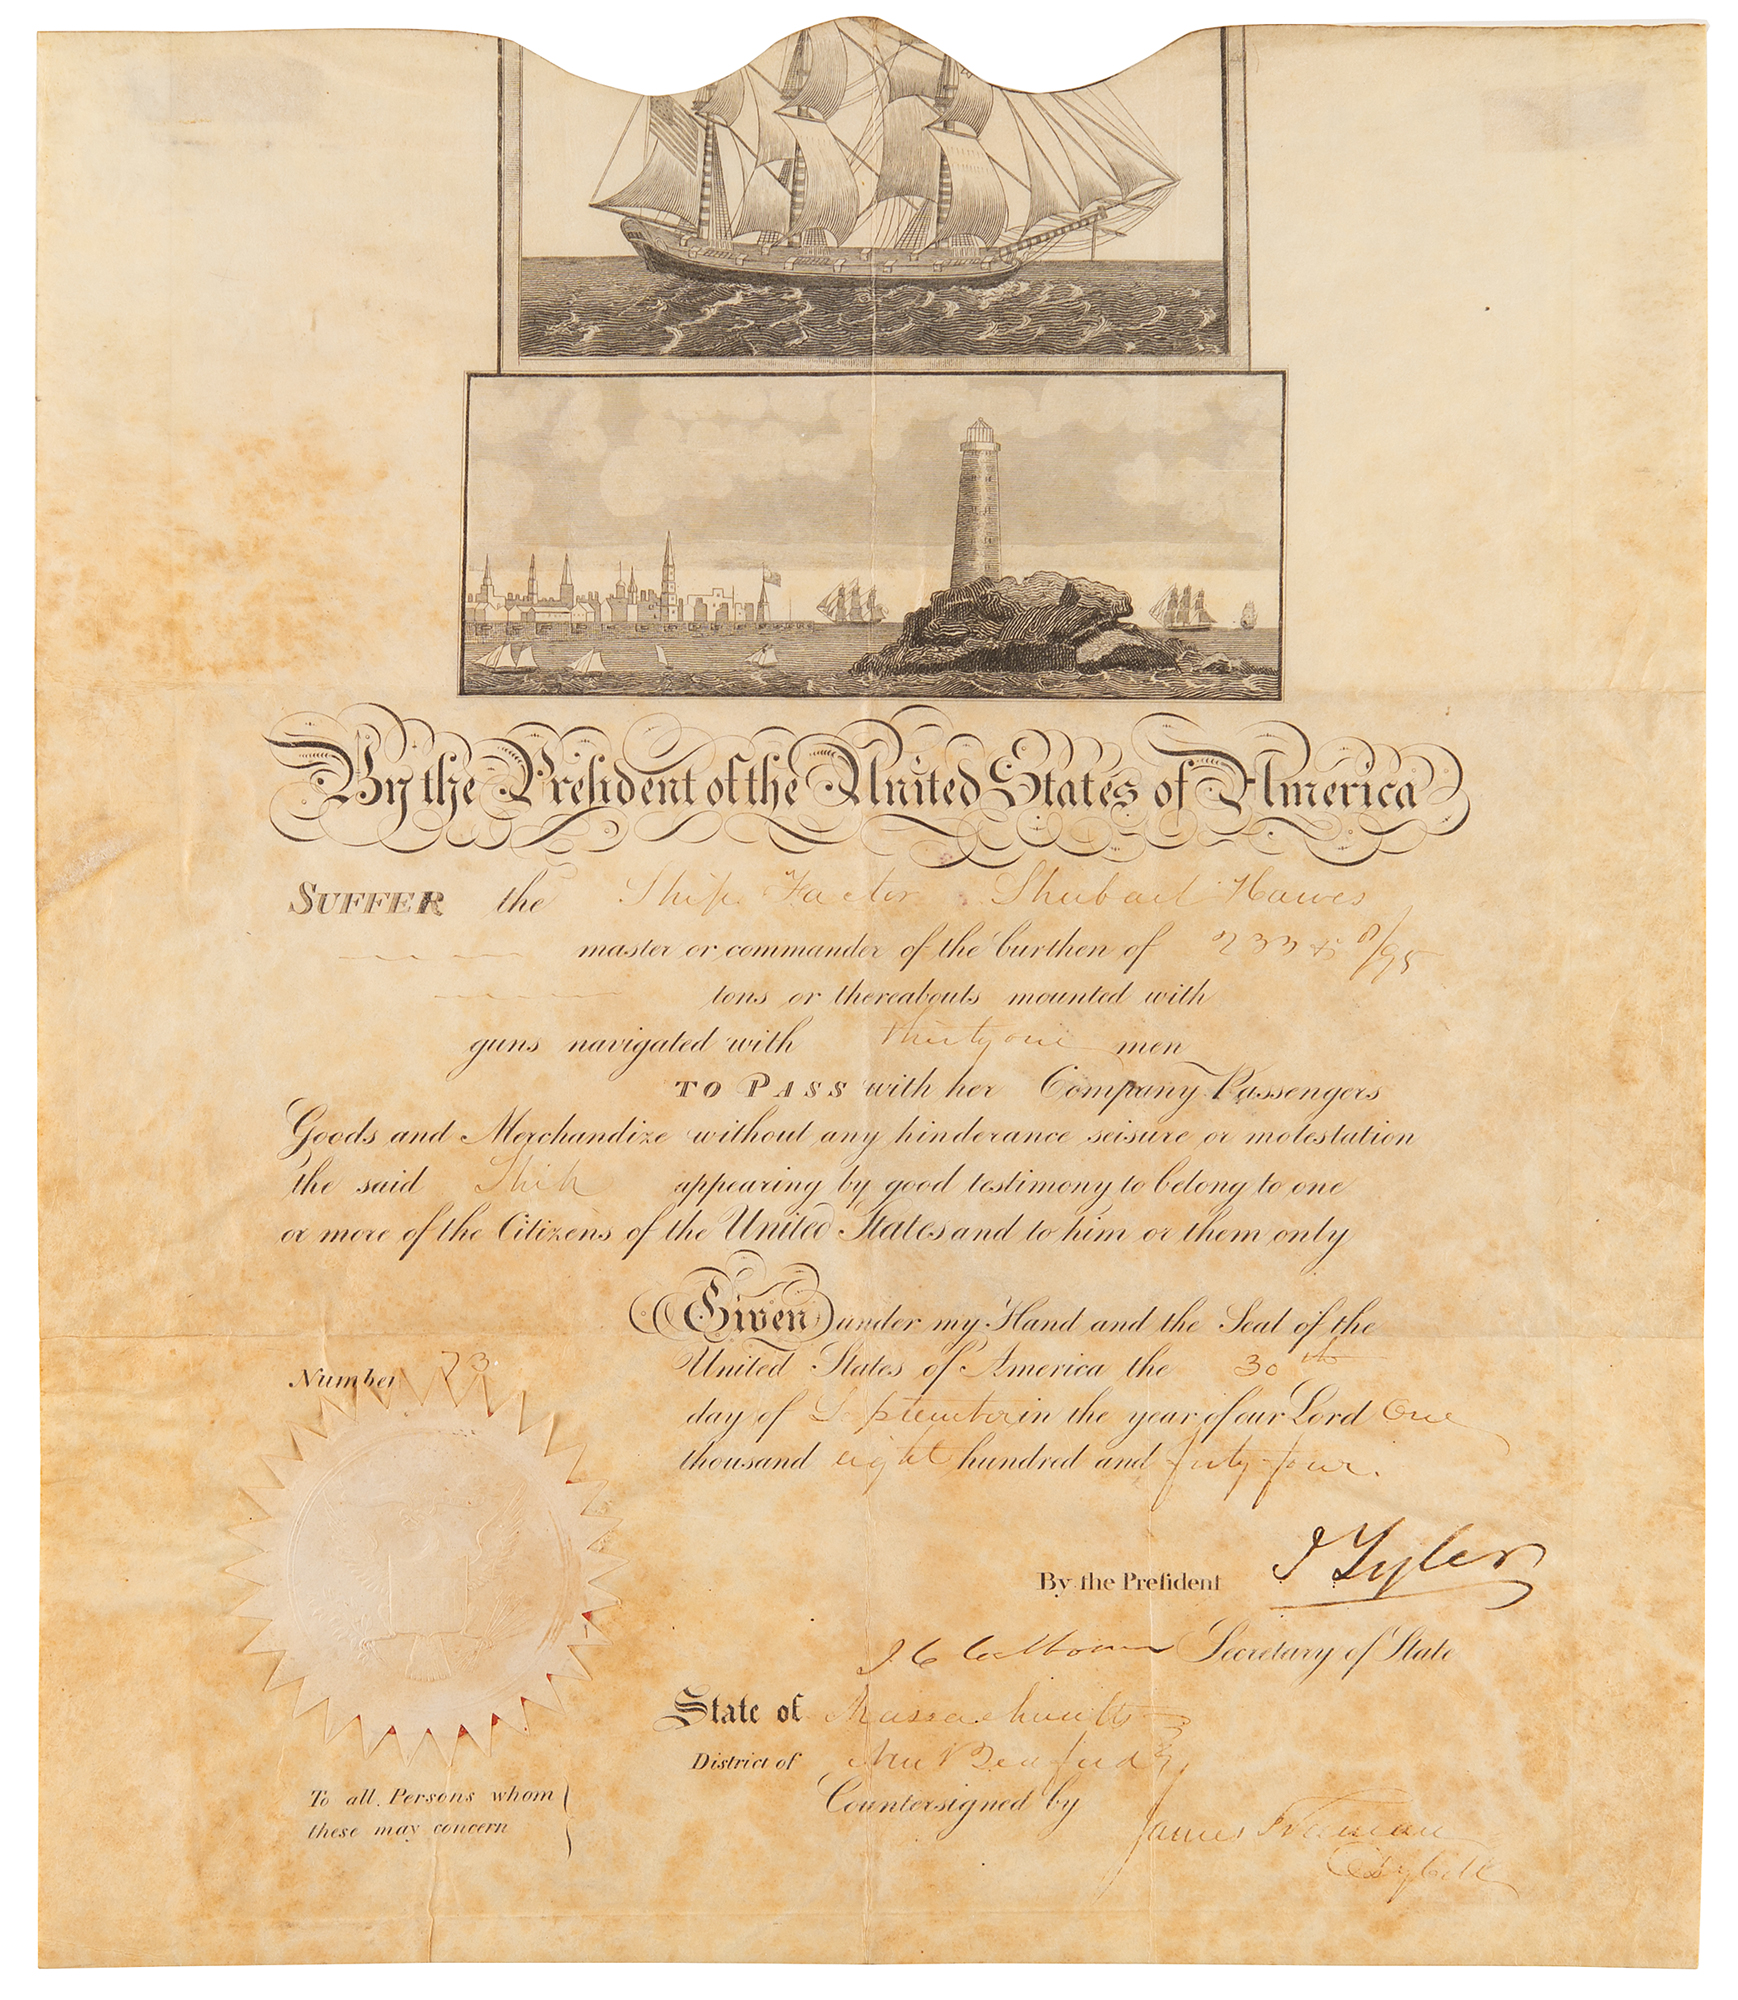 By the President of the United States of America
SUFFER the Ship Factor Shubael Hawes
master or commander of the burthen of 233 & /95
tons or thereabouts mounted with
guns navigated with Thirty one men
TO PASS with her Company Passengers
Goods and Merchandize without any hinderance seisure or molestation
the said Ship appearing by good testimony to belong to one
or more of the Citizens of the United States and to him or them only
Given under my Hand and the Seal of the
United States of America the 30th
Number 73
day of September in the year of our Lord One
thousand eight hundred and forty four.
By the President J Tyler
J C Calhoun Secretary of State
State of Massachusetts
District of New Bedford
To all Persons whom
these may concern
Countersigned by
James Freeman